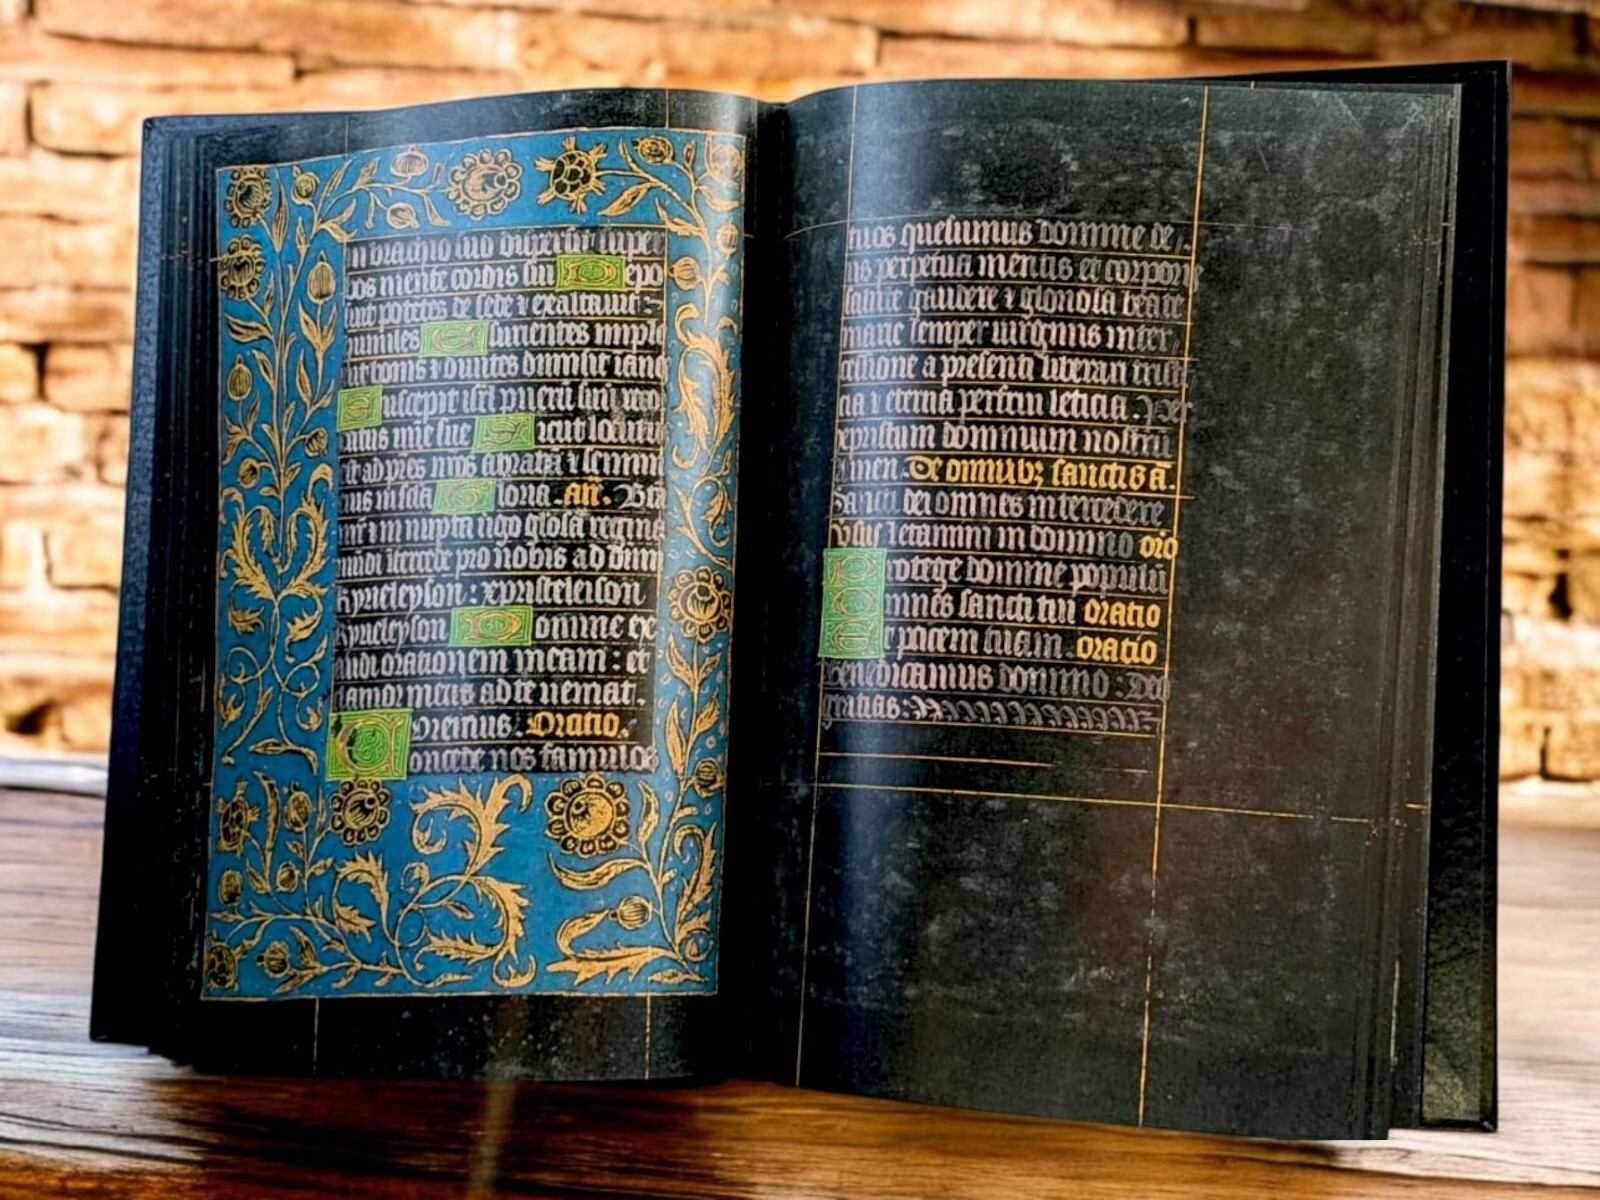 in brachio suo dispersit supe
bos mente cordis sui Depo
suit potētes de sede ⁊ exaltauit
humiles Esurientes imple
uit bonis ⁊ diuites dimisit inanes
Suscepit isrl puerū suū reco
datus mīe sue Sicut locutus
est ad p̄res nr̄os abrahā ⁊ semini
eius in secla Gloria. Añ. Bea
mūdi itercede pro nobis ad dūm
kyrieleyson : xpristeleison
kyrieleyson Domine ex
audi orationem meam : et
clamor meus ad te ueniat.
Oremus. Oratio.
Concede nos famulos
tuos quesumus domine de
us perpetua mentis et corporis
sanite gaudere ⁊ gloriosa beate
marie semper uirginis inter
cessione a presenti liberari tristi
cia ⁊ eterna perfrui leticia. Per
xpristum dominum nostrū
Amen. De omnibꝫ sanctis ā.
Sancti dei omnes intercedere
Vsus Letamini in domino oro
Protege domine populū
Omnes sancti tui oratio
Et pacem tuam. oratio
Benedicamus domino : Deo
gratias :